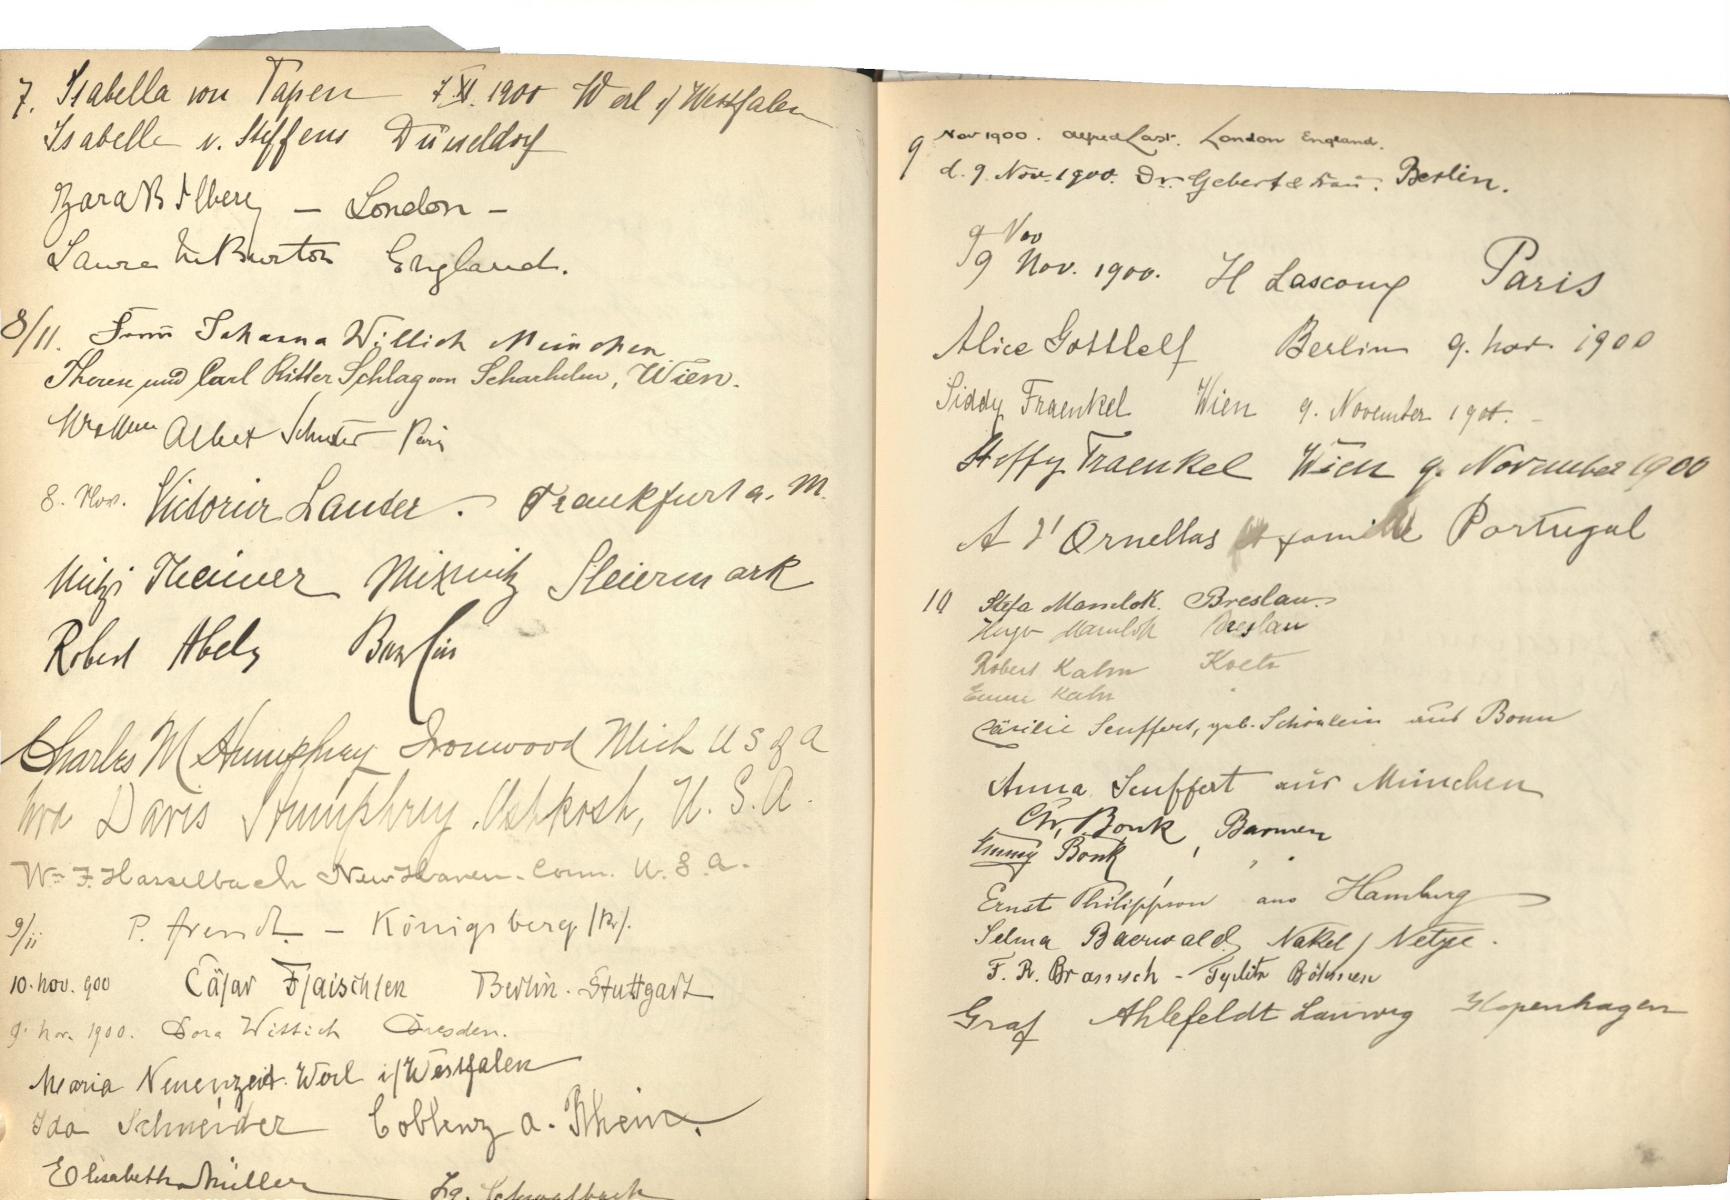 7. Isabella von Papen 7.XI.1900 Werl i/Westfalen
Isabella v. Steffens Düsseldorf
London -
Laura McBurton England.
8/11. Frau Johanna Willich München
Therese und Carl Ritter Schlag von Scharhelm, Wien.
Albert Schuster Paris
8. Nov. Victorine Lauter. Frankfurt a. M.
Mitzi Theimer Mixnitz Steiermark
Robert Abels Berlin
Charles M Humphrey Ironwood Mich U S of a
Ora Davis Humphrey. Oshkosh, U. S. A.
Wm F. Hasselbach New Haven. Conn. U. S. A.
9/11 P. Arendt - Königsberg /Pr/.
10. nov. 900 Cäsar Flaischlen Berlin. Stuttgart
9. nov. 1900. Dora Wittich Dresden.
Maria Neuenzeit. Werl i/Westfalen
Ida Schneider Coblenz a. Rhein.
Elisabeth Müller Lg. Schwalbach
9 Nov 1900. Alfred Last. London England.
d. 9. Nov. 1900. Dr. Gebert & Frau. Berlin.
9 Nov
9 Nov. 1900. H Lascoux Paris
Alice Gottlelf Berlin 9. nov. 1900
Siddy Fraenkel Wien 9. November 1900. -
Steffy Fraenkel Wien 9. November 1900
A d'Ornellas et famille Portugal
10 Stefa Mamlok. Breslau.
Hugo Mamlok Breslau
Robert Kahn
Emma Kahn "
Cäcilie Seuffert, geb. Schönlein aus Bonn
Anna Seuffert aus München
Chr. Bonk, Barmen
Emmy Bonk, " "
Ernst Philippson aus Hamburg
Selma Baerwald, Nakel / Netze.
F. R. - Teplitz Böhmen
Graf Ahlefeldt Laurvig Kopenhagen